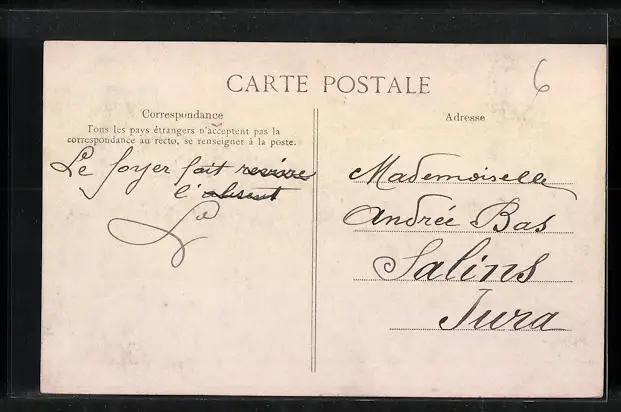 CARTE POSTALE
6
Correspondance
Tous les pays étrangers n'acceptent pas la
correspondance au recto, se renseigner à la poste.
Le foyer fait revivre
l'absent
Adresse
Mademoiselle
Andrée Bas
Salins
Jura